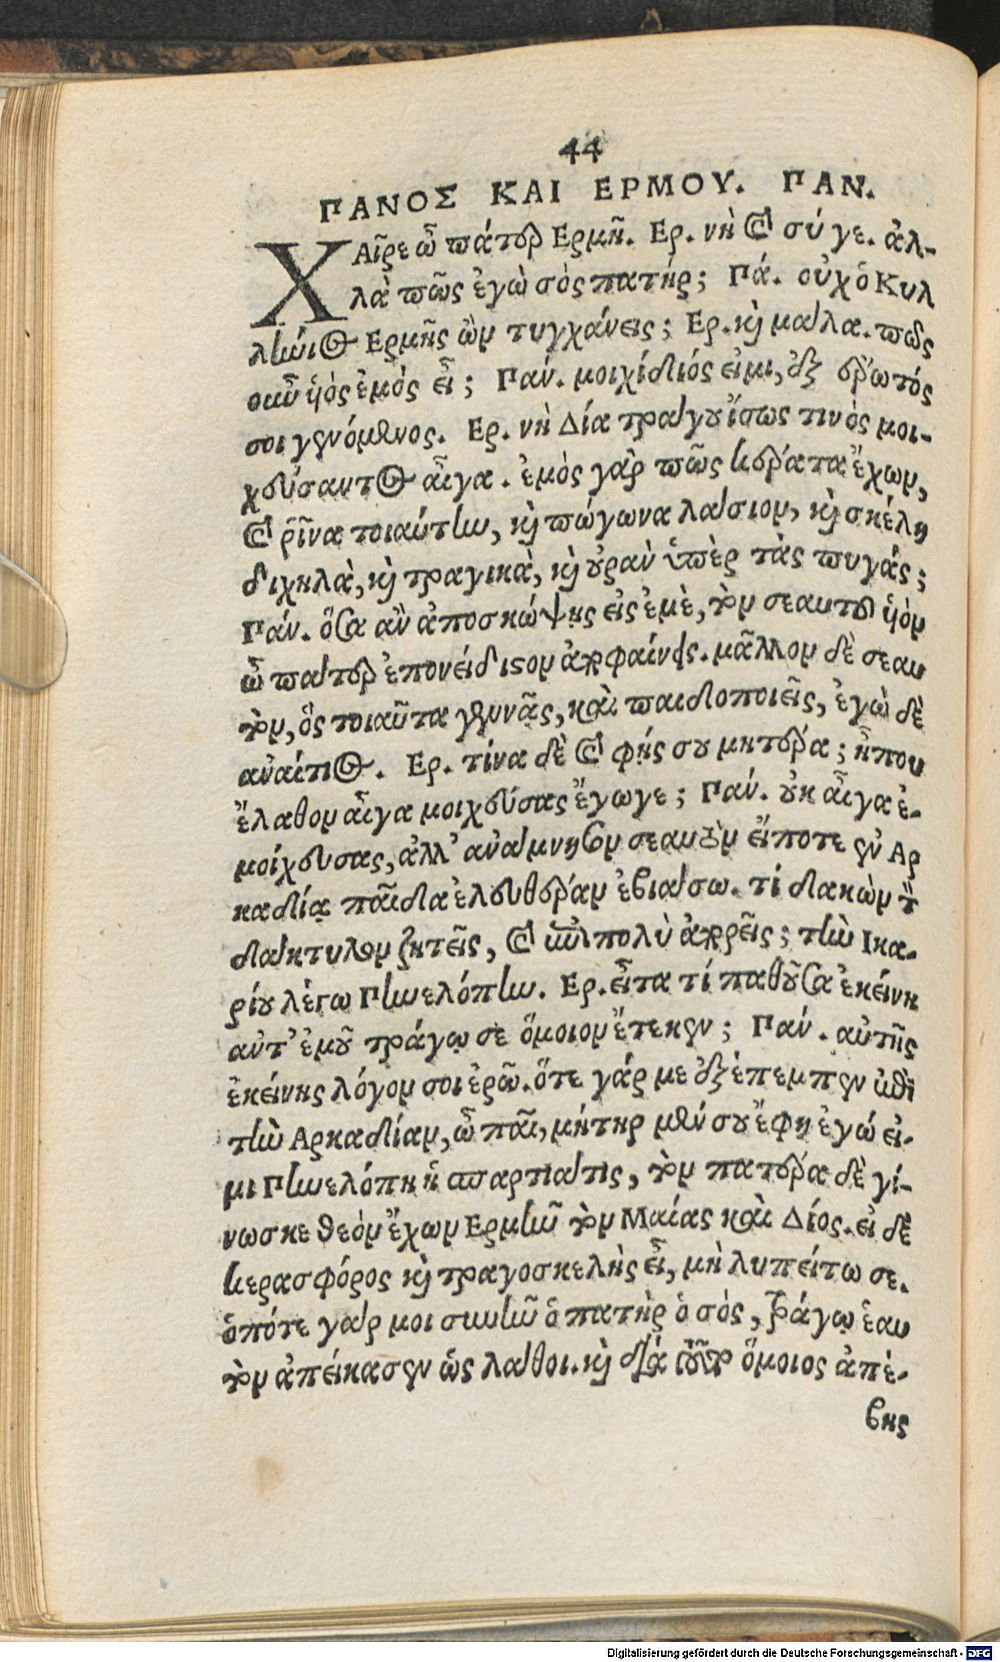 44
ΠΑΝΟΣ ΚΑΙ ΕΡΜΟΥ. ΠΑΝ.
ΧΑῖρε ὦ πάτερ Ερμῆ. Ερ. νὴ καὶ σύ γε. ἀλ-
λὰ πῶς ἐγὼ σὸς πατήρ; Πά. οὐχ ὁ Κυλ
λήνιος Ερμῆς ὢν τυγχάνεις; Ερ. καὶ μάλα. πῶς
οὖν ὑὸς ἐμὸς εἶ; Γαν. μοιχίδιός εἰμι, ἐξ ἔρωτός
σοι γενόμενος. Ερ. νὴ Δία τράγου ἴσως τινὸς μοι-
χεύσαντος αἶγα. ἐμὸς γὰρ πῶς κέρατα ἔχων,
καὶ ῥῖνα τοιαύτην, καὶ πώγωνα λάσιον, καὶ σκέλη
διχηλὰ, καὶ τραγικὰ, καὶ οὐρὰν ὑπὲρ τὰς πυγάς;
Γάν. ὅσα ἂν ἀποσκώψῃς εἰς ἐμὲ, τὸν σεαυτοῦ ὑὸν
ὦ πάτερ ἐπονείδιστον ἀποφαίνεις. μᾶλλον δὲ σεαυ
τὸν, ὃς τοιαῦτα γεννᾷς, καὶ παιδοποιεῖς, ἐγὼ δὲ
ἀναίτιος. Ερ. τίνα δὲ καὶ φῄς σου μητέρα; ἤπου
ἔλαθον αἶγα μοιχεύσας ἔγωγε; Γαν. οὐκ αἶγα ἐ-
μοίχευσας, ἀλλ' ἀνάμνησον σεαυτὸν εἴποτε ἐν Αρ
καδίᾳ παῖδα ἐλευθέραν ἐβιάσω. τί δακὼν τὸν
δάκτυλον ζητεῖς, καὶ ἐπιπολὺ ἀπορεῖς; τὴν Ικα-
ρίου λέγω Πηνελόπην. Ερ. εἶτα τί παθοῦσα ἐκείνη
ἀντ' ἐμοῦ τράγῳ σε ὅμοιον ἔτεκεν; Γαν. αὐτῆς
ἐκείνης λόγον σοι ἐρῶ. ὅτε γάρ με ἐξέπεμπεν ἐπὶ
τὴν Αρκαδίαν, ὦ παῖ, μήτηρ μέν σου ἔφη ἐγώ εἰ-
μι Πηνελόπη ἡ σπαρτιάτις, τὸν πατέρα δὲ γί-
νωσκε θεὸν ἔχων Ερμῆν τὸν Μαίας καὶ Δίος. εἰ δὲ
κερασφόρος καὶ τραγοσκελὴς εἶ, μὴ λυπείτω σε.
ὁπότε γάρ μοι συνῆν ὁ πατὴρ ὁ σὸς, τράγῳ ἑαυ
τὸν ἀπείκασεν ὡς λάθοι. καὶ διὰ τοῦτο ὅμοιος ἀπέ-
βης
Digitalisierung gefördert durch die Deutsche Forschungsgemeinschaft - DFG